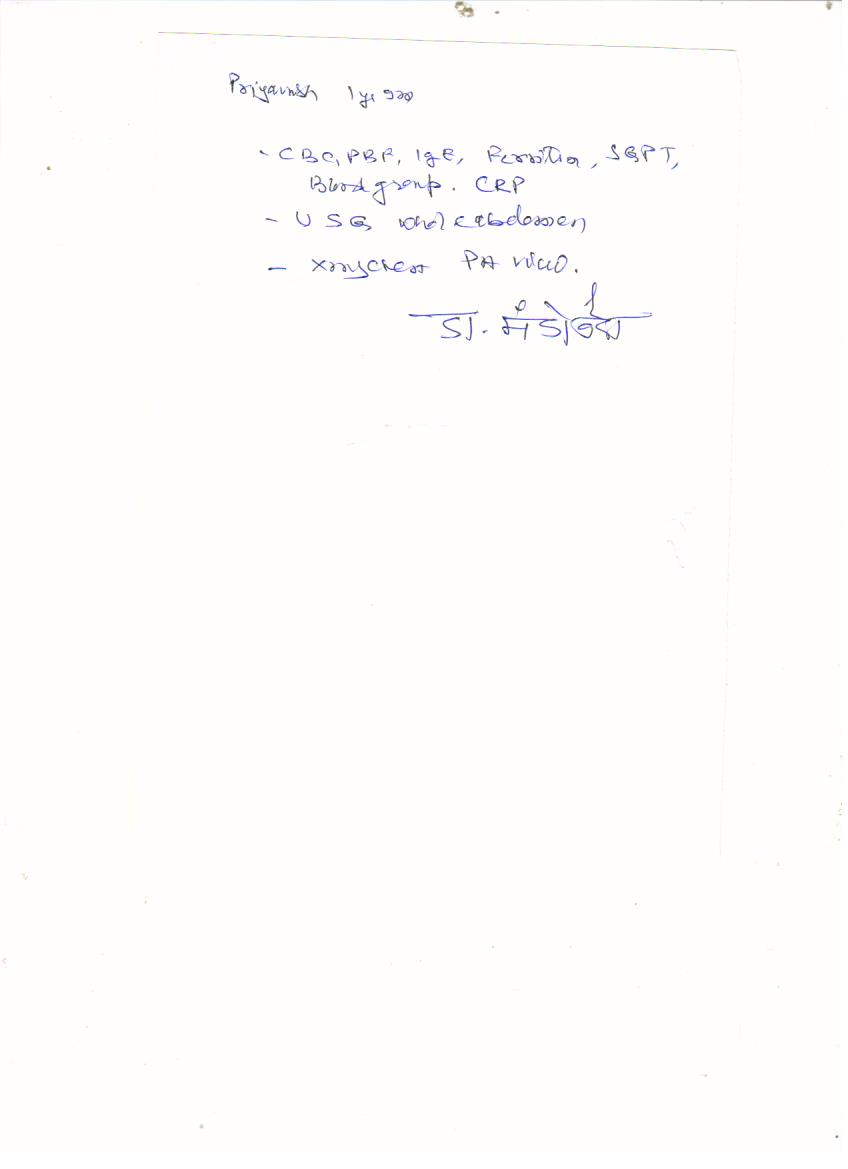 Priyansh 1 yr
- CBC, PBF, IgE, Ferritin, SGPT,
Blood group. CRP
- USG whole abdomen
- Xray chest PA view.
डा.